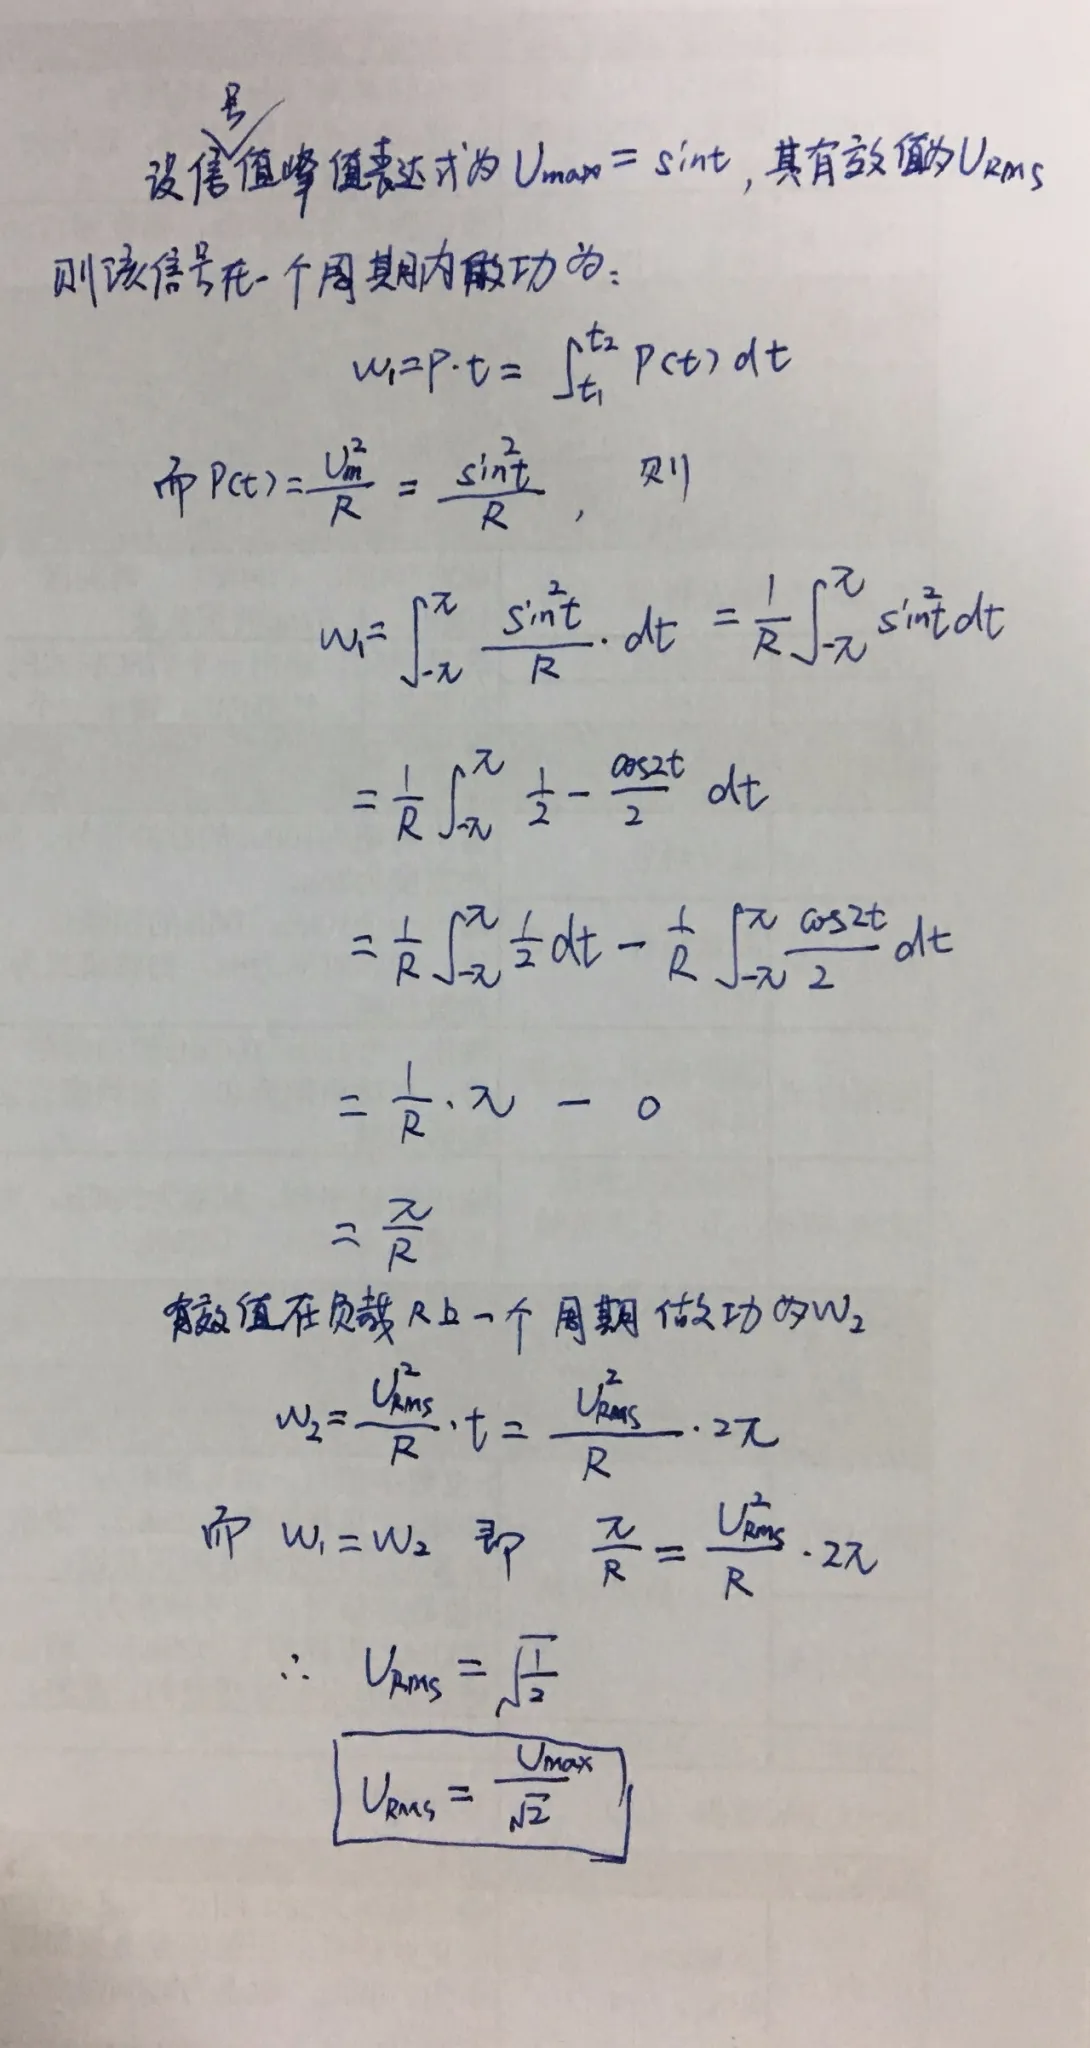 设信号值峰值表达式为 Umax = sint, 其有效值为 URMS
则该信号在一个周期内做功为:
W₁=P·t = ∫_{t₁}^{t₂} P(t) dt
而 P(t) = Um²/R = sin²t/R , 则
W₁ = ∫_{-π}^{π} sin²t/R · dt = 1/R ∫_{-π}^{π} sin²t dt
= 1/R ∫_{-π}^{π} 1/2 - cos2t/2 dt
= 1/R ∫_{-π}^{π} 1/2 dt - 1/R ∫_{-π}^{π} cos2t/2 dt
= 1/R · π - 0
= π/R
有效值在负载R上一个周期做功为W₂
W₂ = URMS²/R · t = URMS²/R · 2π
而 W₁ = W₂ 即 π/R = URMS²/R · 2π
∴ URMS = √(1/2)
URMS = Umax/√2